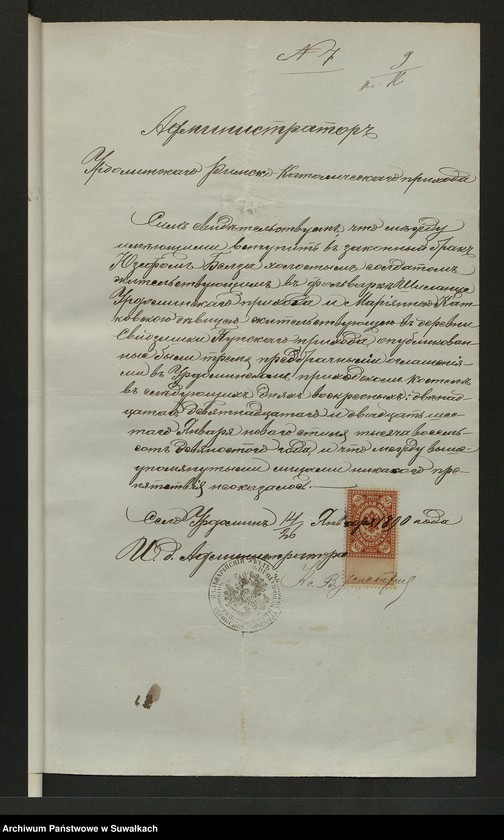 N 7
9
Администраторъ
Урдоминскаго Римско-Католическаго прихода
Симъ свидѣтельствую, что между
имѣющими вступить въ законный бракъ
Юзефомъ Белза холостымъ солдатомъ
жительствующимъ въ фольваркѣ
Урдоминскаго прихода и Маріянною Кат-
ковскою дѣвицею жительствующею въ деревни
Пунскаго прихода опубликован-
ные были тремя предбрачными оглашенія-
ми въ Урдоминскомъ приходскомъ костелѣ
въ слѣдующихъ дняхъ воскресныхъ: двѣнад-
цатаго девятнадцатаго и двадцать шес-
таго Января новаго стиля тысяча восемь-
сотъ девяностого года и что между выше-
упомянутыми лицами никакого пре-
пятствія неоказалось.
Село Урдоминъ 14/26 Января 1890 года
И. д. Администратора
Кс.
Archiwum Państwowe w Suwałkach